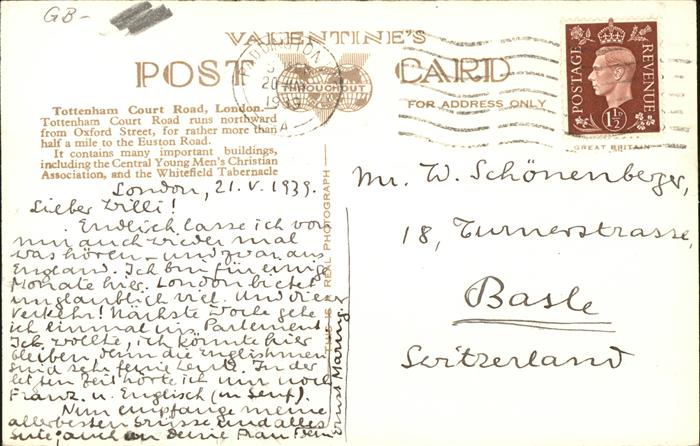 GB-
VALENTINE'S
POST CARD
THROUGHOUT
FOR ADDRESS ONLY
PADDINGTON
1939
A
POSTAGE
REVENUE
1½D
GREAT BRITAIN
Tottenham Court Road, London.
Tottenham Court Road runs northward
from Oxford Street, for rather more than
half a mile to the Euston Road.
It contains many important buildings,
including the Central Young Men's Christian
Association, and the Whitefield Tabernacle
THIS IS A REAL PHOTOGRAPH
London, 21. V. 1939.
Lieber Willi!
Endlich lasse ich von
mir auch wieder mal
was hören - und zwar aus
England. Ich bin für einige
Monate hier. London bietet
unglaublich viel. Und dieser
Verkehr! Nächste Woche gehe
ich einmal ins Parlement.
Ich wollte, ich könnte hier
bleiben, denn die Englishmen
sind sehr feine Leute. In der
letzten Zeit hörte ich nur noch
Franz. u. Englisch (in Genf).
Nun empfange meine
allerbesten Grüsse und alles
Gute, auch an Deine Frau Dein
Ernst
Mr. W. Schönenberger,
18, Turnerstrasse,
Basle
Switzerland